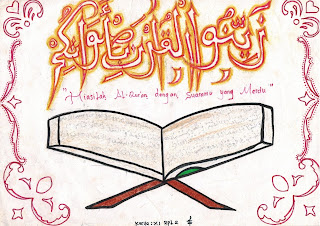 زَيِّنُوا الْقُرْآنَ بِأَصْوَاتِكُمْ
"Hiasilah Al-Qur'an dengan Suaramu yang Merdu"
XI RPL 2